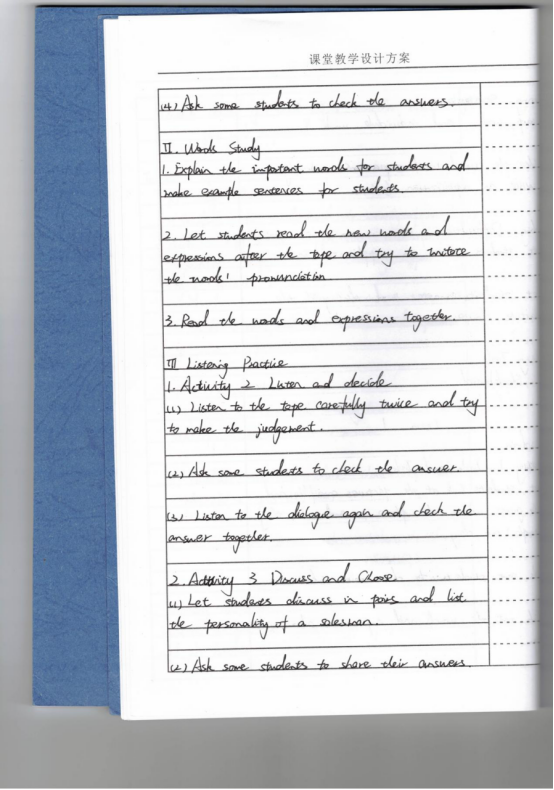 课堂教学设计方案
(4) Ask some students to check the answers.
II. Words Study
1. Explain the important words for students and
make example sentences for students.
2. Let students read the new words and
expressions after the tape and try to imitate
the words' pronunciation
3. Read the words and expressions together.
III Listening Practice
1. Activity 2 Listen and decide
(1) Listen to the tape carefully twice and try
to make the judgement.
(2) Ask some students to check the answer
(3) Listen to the dialogue again and check the
answer together.
2. Activity 3 Discuss and Choose
(1) Let students discuss in pairs and list
the personality of a salesman.
(2) Ask some students to share their answers.